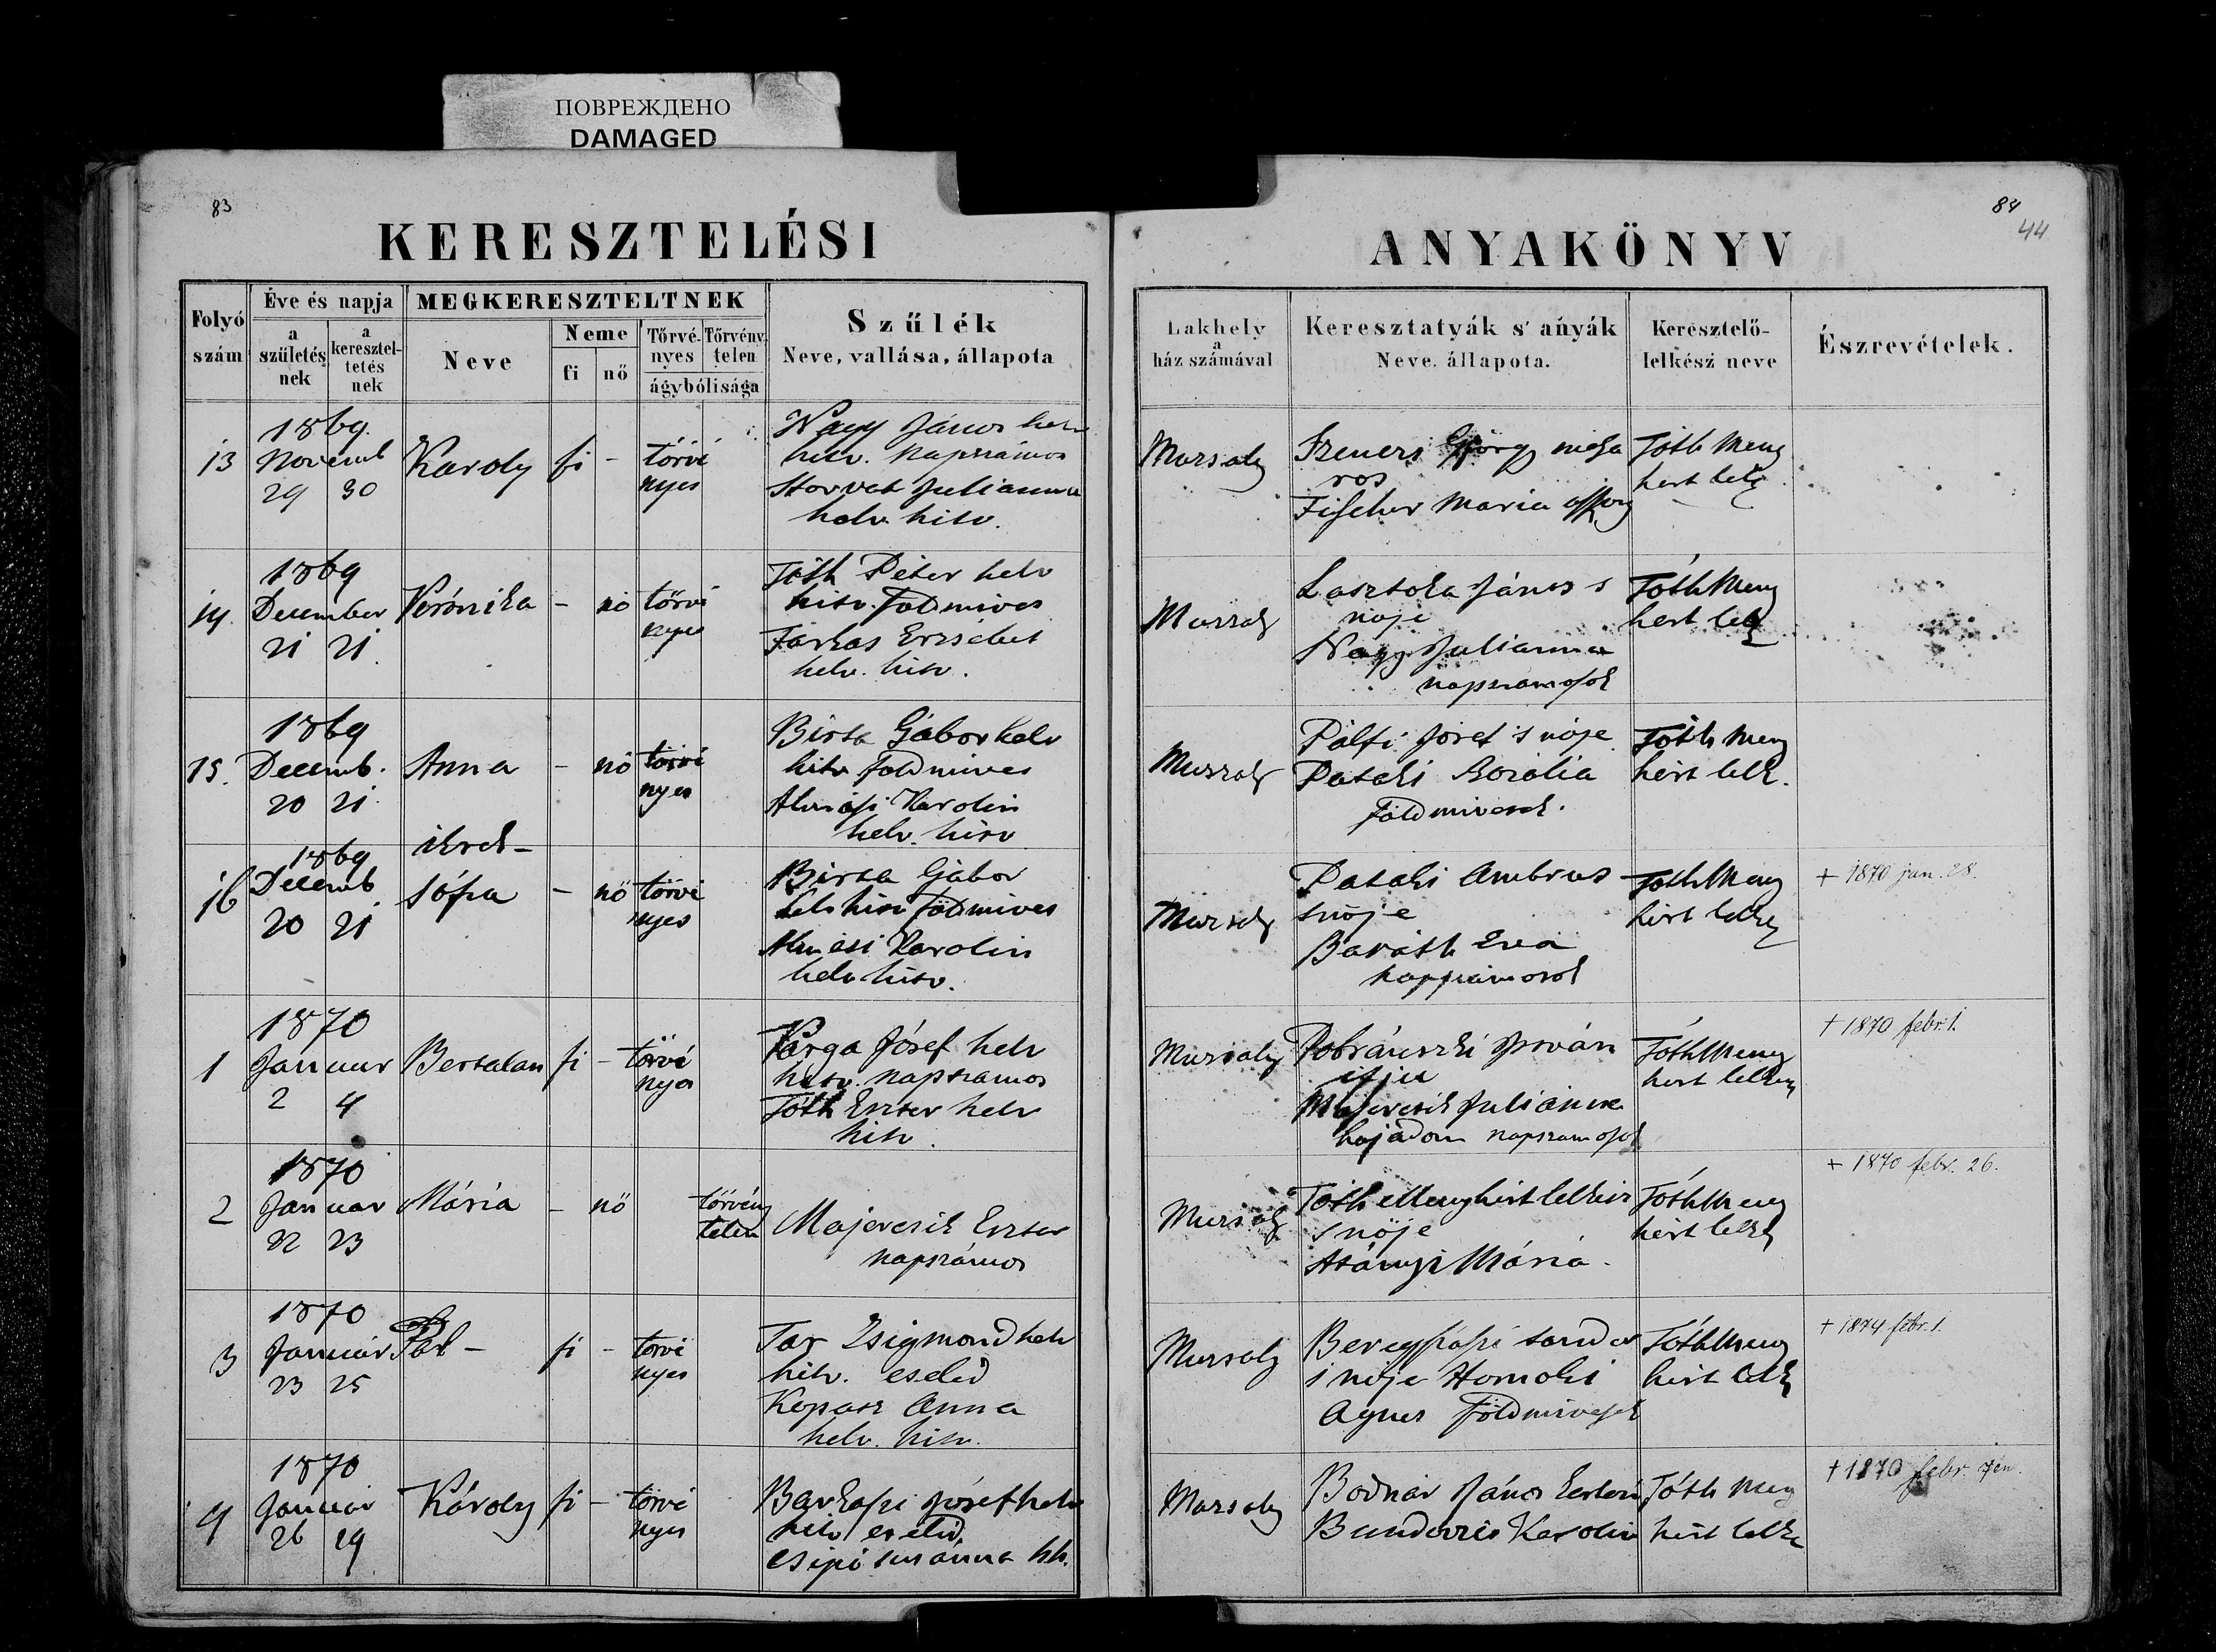 ПОВРЕЖДЕНО
DAMAGED
83
KERESZTELÉSI
Folyó szám
Éve és napja
a születés nek
a keresztel- tetés nek
MEGKERESZTELTNEK
Neve
Neme
fi
nő
Törvé- nyes
Törvény telen
ágybólisága
Szűlék
Neve, vallása, állapota
13
1869.
Novemb
29 30
Karoly
fi
-
törvé
nyes
Nagy János helv
helv. napszámos
Horvat Julianna
helv. hitv.
14.
1869
December
21 21.
Verónika
-
nö
törvé
nyes
Tóth Péter helv
hitv. földmives
Farkas Erzsébet
helv. hitv.
15.
1869
Decemb.
20 21.
Anna
-
nö
törvé
nyes
Birta Gábor helv
hitv földmives
Almási Karolin
helv. hitv
ikrek-
16
1869
Decemb
20 21
Sófia
-
nö
törvé
nyes
Birta Gábor
helv hitv földmives
Almási Karolin
helv hitv.
1
1870
Januar
2 4
Bertalan
fi
-
törvé
nyes
Varga Jósef helv
hitv. napszamos
Tóth Eszter helv
hitv.
2
1870
Januar
22 23
Mária
-
nö
törvény
telen
Majercsik Eszter
napszámos
3
1870
Január
23 25
Pál -
fi
-
törvé
nyes
Tar Zsigmond helv
hitv. cseléd
Kopasz Anna
helv. hitv.
4
1870
Január
26 29
Károly
fi
-
törvé
nyes
Barkaszi Jósef helv
hitv cseléd
Csipó Susánna hh.
84
44
ANYAKÖNYV
Lakhely
a
ház számával
Keresztatyák s' anyák
Neve, állapota.
Keresztelő-
lelkész neve
Észrevételek.
Mursaly
György mésza
ros
Fischer Maria
Tóth Meny
hert lelk
Mursaly
Lasztoka János s
nöje
Nagy Julianna
napszamosok
Tóth Meny
hert lelk
Mursaly
Pálfi Jósef s nöje
Pataki Rozália
földmivesek.
Tóth Meny
hért lelk.
Mursaly
Pataki Ambrus
s nöje
Baráth Eva
napszámosok
Tóth Meny
hért lelk
+ 1870 jan. 28.
Mursaly
Dobránszki István
ifju
Majercsik Juliánna
hajadon napszamosok
Tóth Meny
hert lelk
+ 1870 febr. 1.
Mursaly
Tóth Menyhért lelkész
s nöje
Asányi Mária.
Tóth Meny
hért lelk
+ 1870 febr. 26.
Mursaly
Beregszászi Sandor
s neje Homoki
Agnes földmivesek
Tóth Meny
hért lelk
+ 1874 febr. 1.
Mursaly
Bodnár János
Karolin
Tóth Meny
hért lelk
+ 1870 febr. 7én.